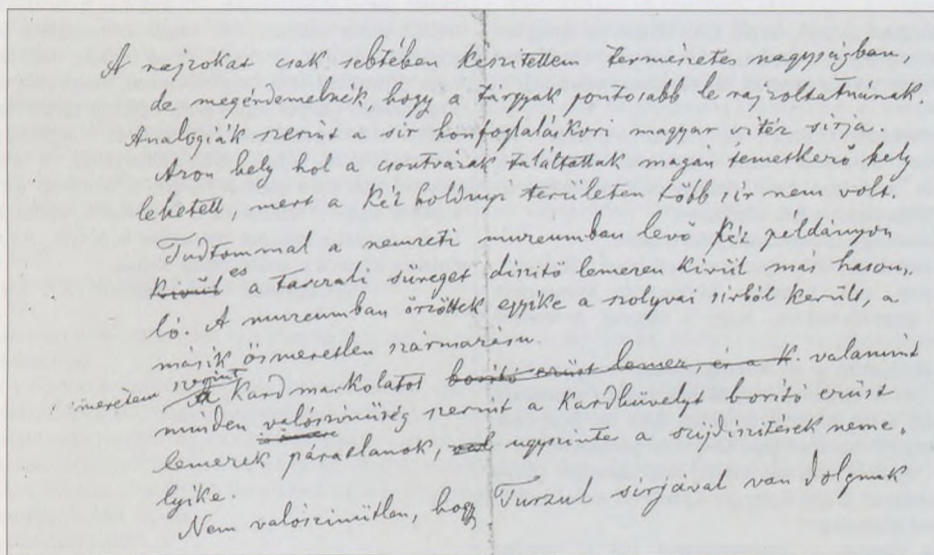 A rajzokat csak sebtében készitettem természetes nagyságban,
de megérdemelnék, hogy a tárgyak pontosabb le rajzoltatnának.
Analogiák szerint a sir honfoglaláskori magyar vitéz sirja.
Azon hely hol a csontvázak találtattak magán temetkező hely
lehetett, mert a két holdnyi területen több sir nem volt.
Tudtommal a nemzeti muzeumban levő két példányon
kivül és a tarczali süveget diszitő lemezen kivül más hason-
ló. A muzeumban őrzöttek egyike a szolyvai sirból került, a
másik ösmeretlen származásu
ismeretem szerint A kardmarkolatot boritó ezüst lemez, és a k. valamint
minden valószinüség szerint a kardhüvelyt boritó ezüst
lemezek páratlanok, ugyszinte a szijdiszitések neme-
lyike.
Nem valószinütlen, hogy Turzul sirjával van dolgunk